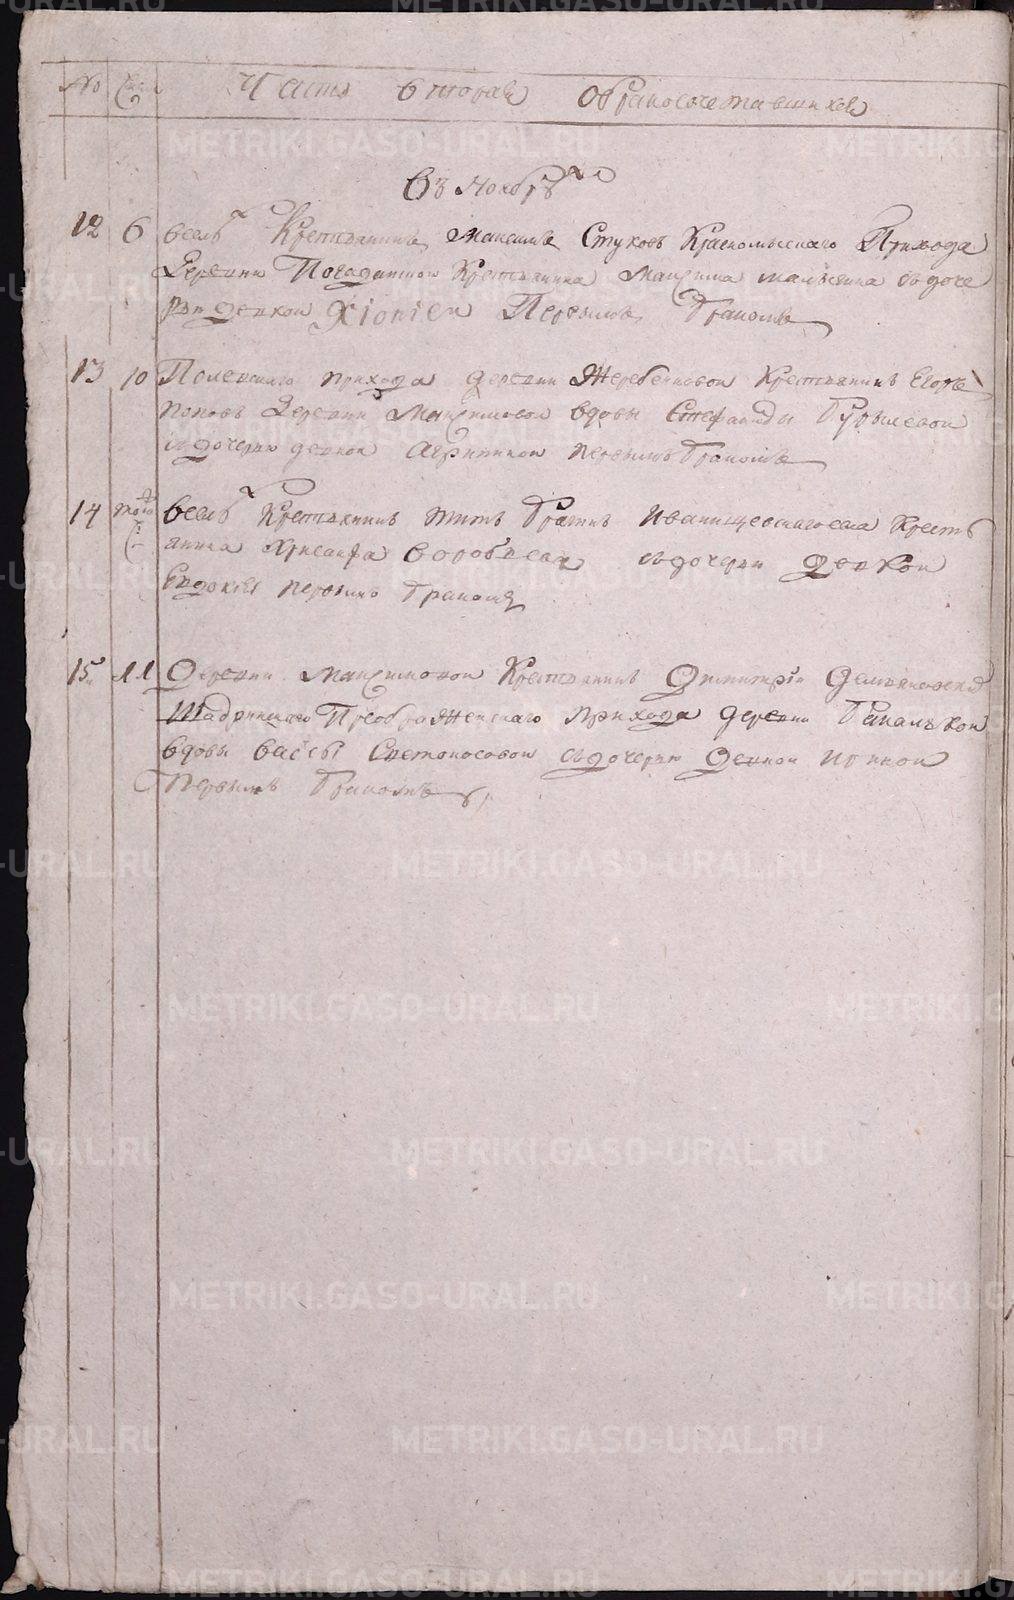 № Чис: Часть вторая о бракосочетавшихся
въ ноябрѣ
12 6 селѣ Крестьянинъ Максимъ Стуковъ Красномысскаго Прихода
Деревни Погадайской Крестьянина Максима съ доче
рью девкой Хіоніей Первымъ бракомъ
13 10 Полевскаго прихода деревни Жеребенковой Крестьянинъ Егоръ
Поповъ Деревни Максимовой вдовы Стефаниды
съ дочерью девкой Агрипиной первымъ бракомъ
14 того Селѣ Крестьянинъ Титъ Иванищевскаго села Кресть
янина Хрисанфа Воробьева съ дочерью девкой
Евдокіей первымъ бракомъ
15 11 Деревни Максимовой Крестьянинъ Димитрій
Шадринскаго Преображенскаго прихода деревни
вдовы Вассы Светоносовой съ дочерью девкой Ириной
Первымъ бракомъ
METRIKI.GASO-URAL.RU